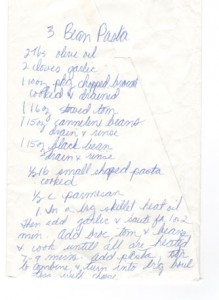 3 Bean Pasta
2 Tbs olive oil
2 cloves garlic
1 10oz pkg chopped brocc
cooked & drained
1 16oz stewed tom
1 15oz cannelini beans
drain & rinse
1 15oz black bean
drain & rinse
1/2 lb small shaped pasta
cooked
1/2 c parmesan
1 In a big skillet heat oil
then add garlic & saute for 1 or 2
min add broc, tom, & beans
& cook until all are heated
min add pasta
to combine, & turn into big bowl